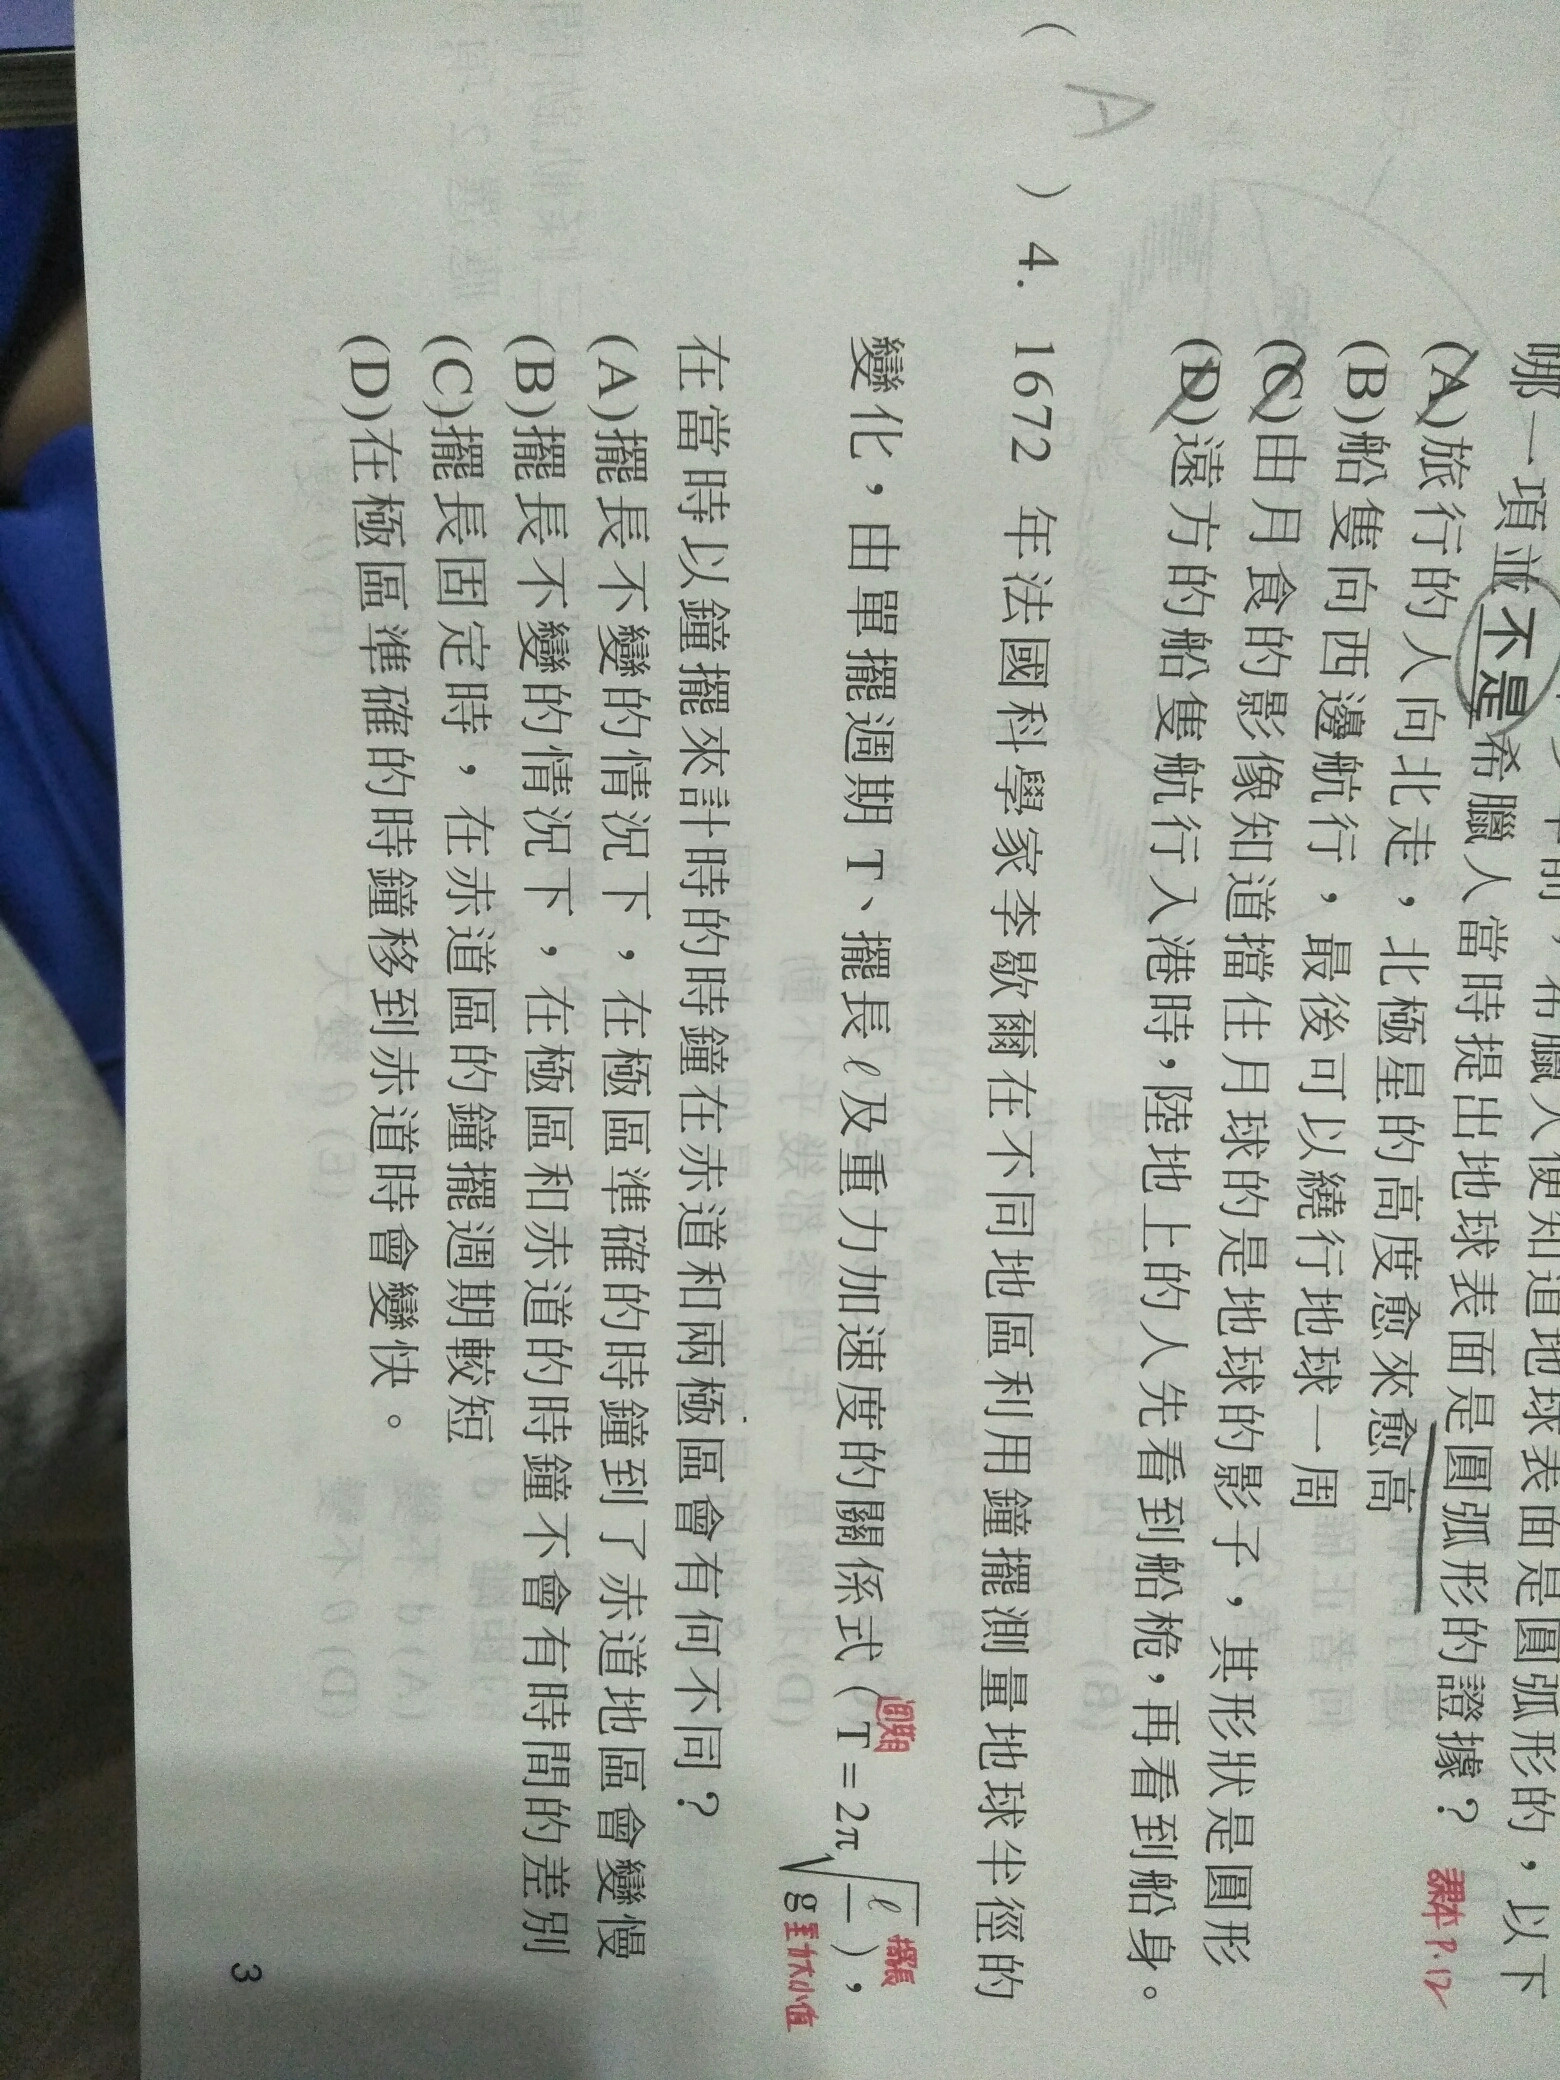 哪一項並不是希臘人當時提出地球表面是圓弧形的證據? 課本 P.12
(A)旅行的人向北走，北極星的高度愈來愈高
(B)船隻向西邊航行，最後可以繞行地球一周
(C)由月食的影像知道擋住月球的是地球的影子，其形狀是圓形
(D)遠方的船隻航行入港時，陸地上的人先看到船桅，再看到船身。
( A )4. 1672 年法國科學家李歇爾在不同地區利用鐘擺測量地球半徑的
變化，由單擺週期 T、擺長 ℓ 及重力加速度的關係式 (T = 2π√(ℓ/g))，
週期
擺長
在當時以鐘擺來計時的時鐘在赤道和兩極區會有何不同?
(A)擺長不變的情況下，在極區準確的時鐘到了赤道地區會變慢
(B)擺長不變的情況下，在極區和赤道的時鐘不會有時間的差別
(C)擺長固定時，在赤道區的鐘擺週期較短
(D)在極區準確的時鐘移到赤道時會變快。
3